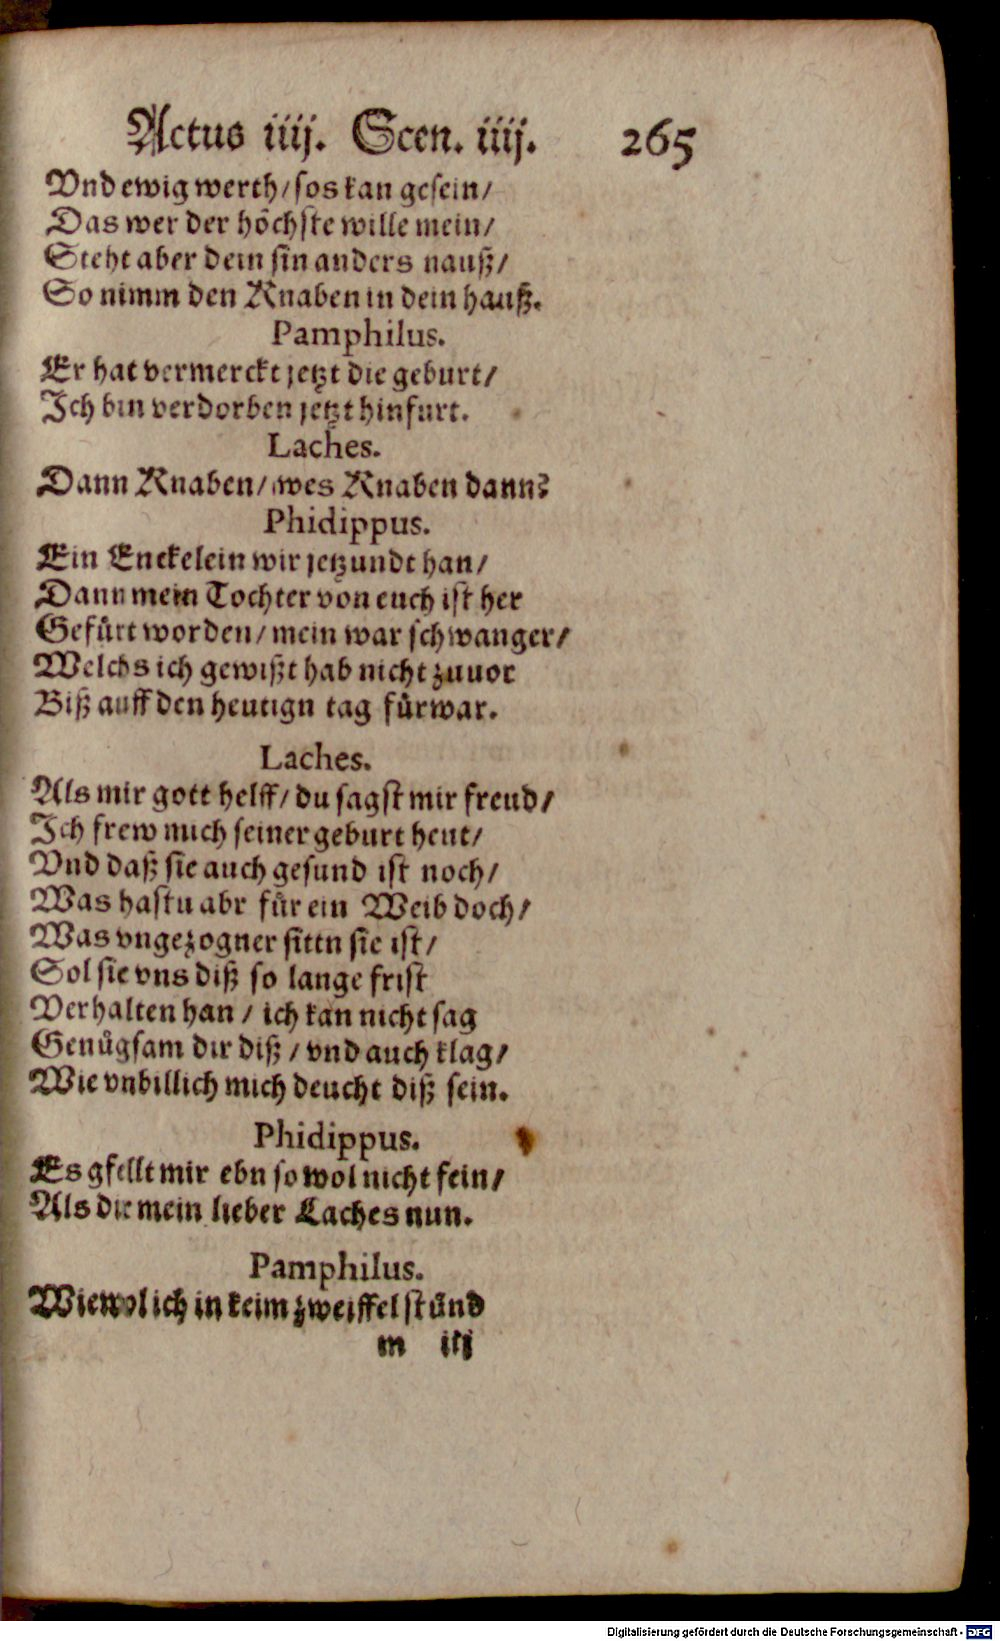 Actus iiij. Scen. iiij. 265
Vnd ewig werth/ sos kan gesein/
Das wer der höchste wille mein/
Steht aber dein sin anders nauß/
So nimm den Knaben in dein hauß.
Pamphilus.
Er hat vermerckt jetzt die geburt/
Ich bin verdorben jetzt hinfurt.
Laches.
Dann Knaben/ wes Knaben dann?
Phidippus.
Ein Enckelein wir jetzundt han/
Dann mein Tochter von euch ist her
Gefürt worden/ mein war schwanger/
Welchs ich gewißt hab nicht zuuor
Biß auff den heutign tag fürwar.
Laches.
Als mir gott helff/ du sagst mir freud/
Ich frew mich seiner geburt heut/
Vnd daß sie auch gesund ist noch/
Was hastu abr für ein Weib doch/
Was vngezogner sittn sie ist/
Sol sie vns diß so lange frist
Verhalten han/ ich kan nicht sag
Genügsam dir diß/ vnd auch klag/
Wie vnbillich mich deucht diß sein.
Phidippus.
Es gfellt mir ebn so wol nicht fein/
Als dir mein lieber Laches nun.
Pamphilus.
Wiewol ich in keim zweiffel stünd
m iij
Digitalisierung gefördert durch die Deutsche Forschungsgemeinschaft - DFG